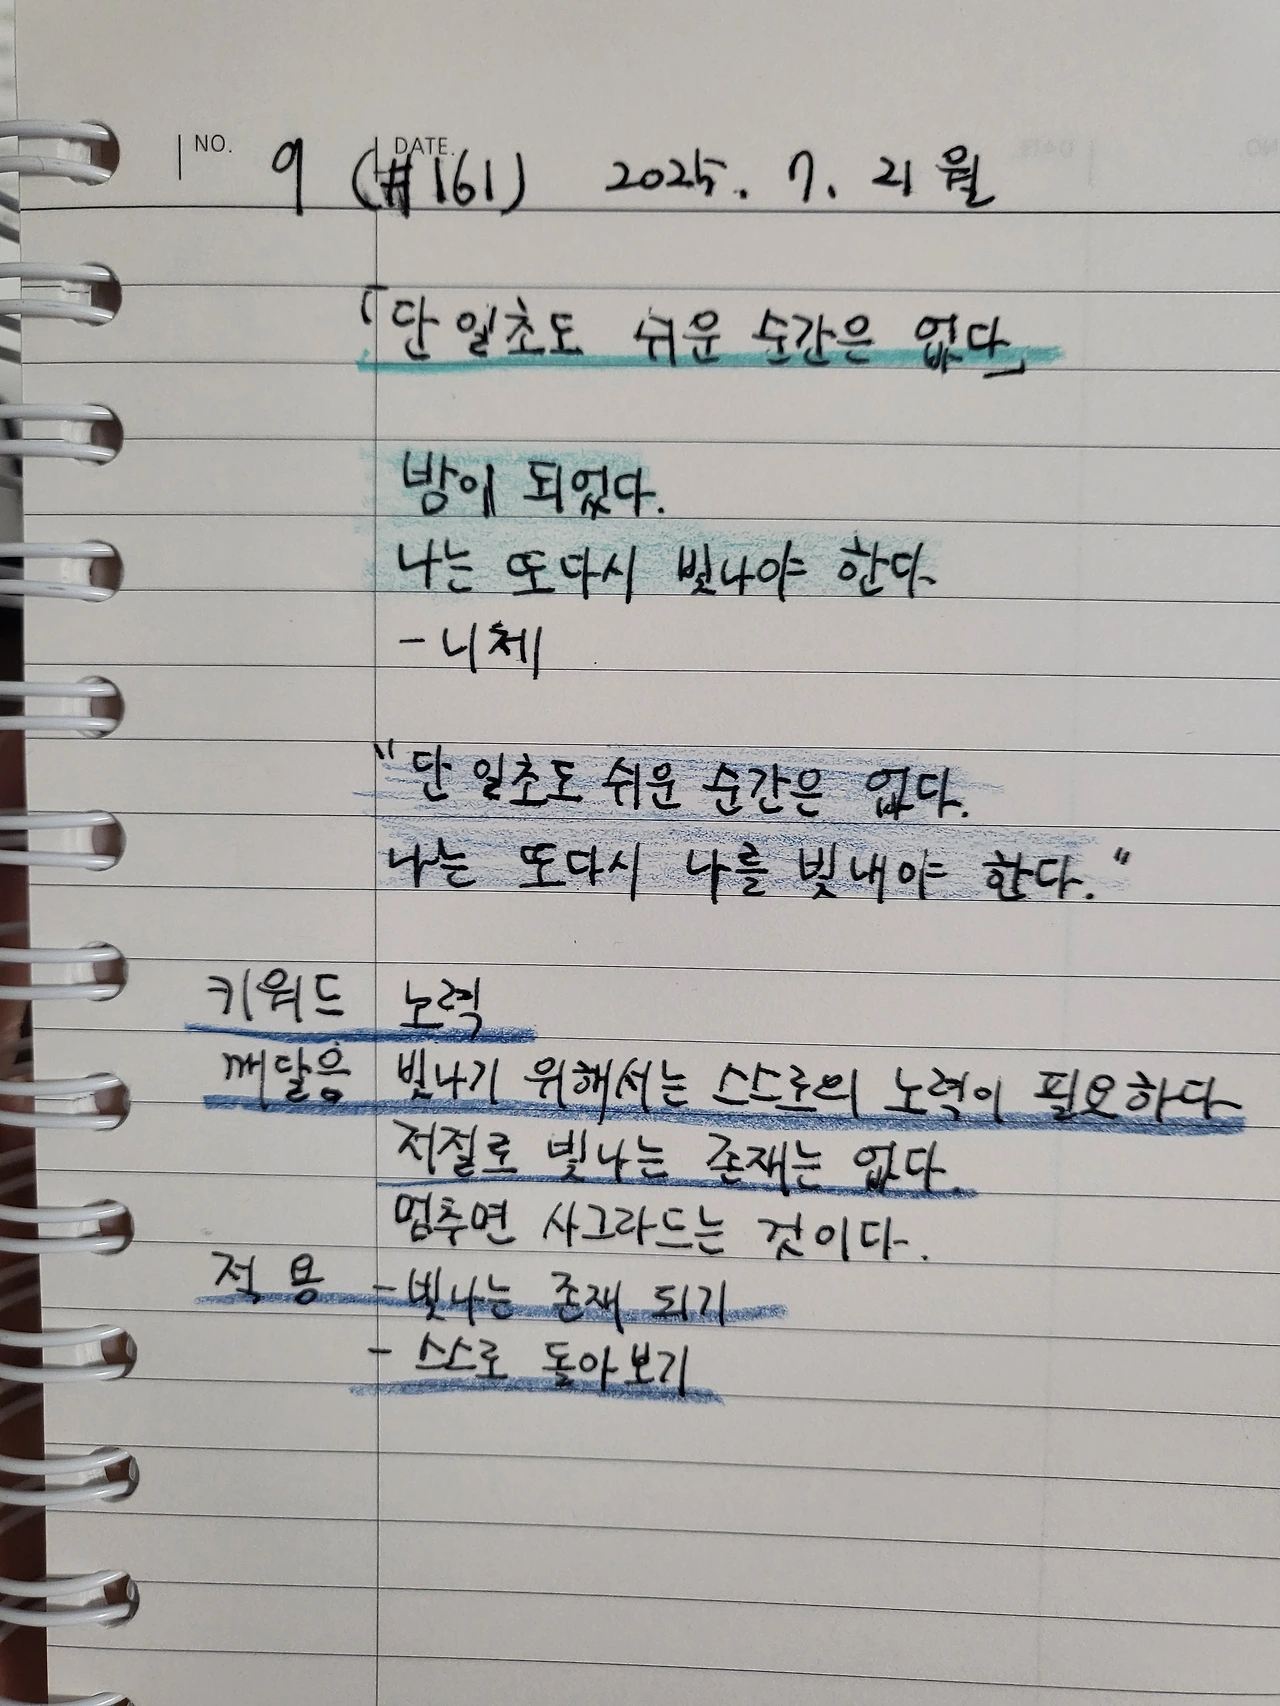 NO. 9 (#161) DATE. 2025. 7. 21 월
「단 일초도 쉬운 순간은 없다」
밤이 되었다.
나는 또다시 빛나야 한다.
- 니체
"단 일초도 쉬운 순간은 없다.
나는 또다시 나를 빛내야 한다."
키워드 노력
깨달음 빛나기 위해서는 스스로의 노력이 필요하다
저절로 빛나는 존재는 없다.
멈추면 사그라드는 것이다.
적용 - 빛나는 존재 되기
- 스스로 돌아보기